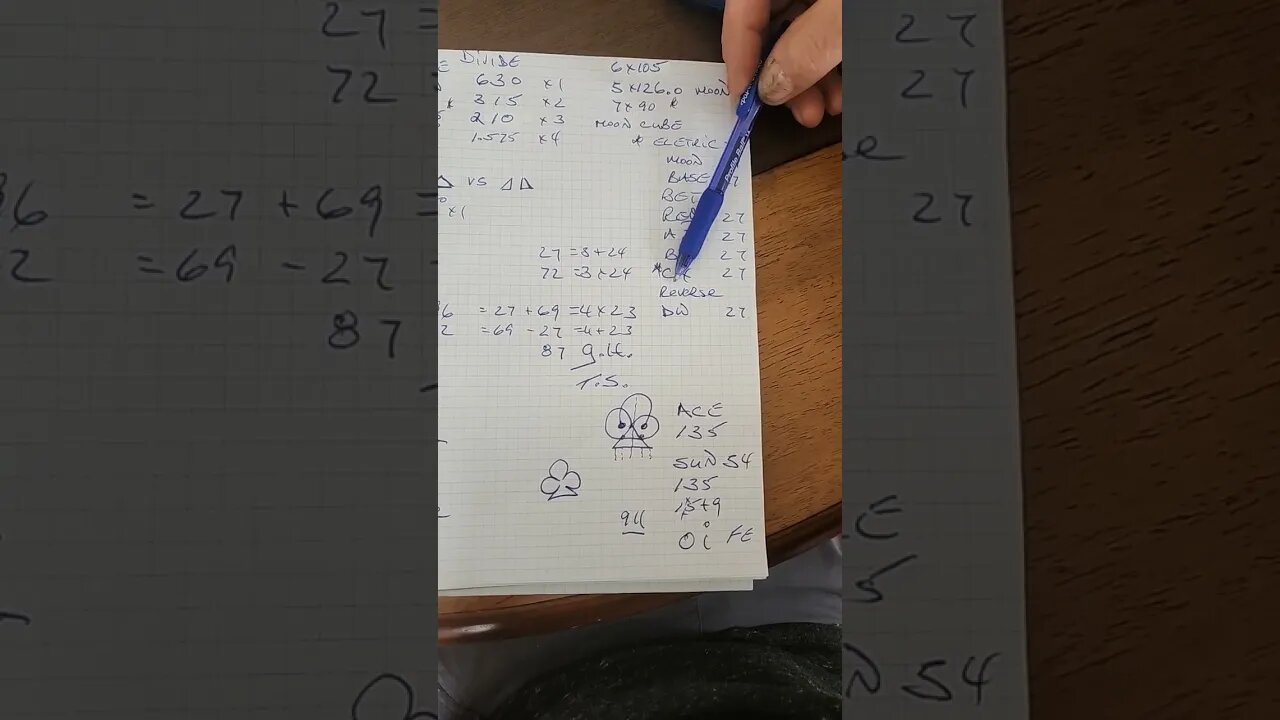 DIVIDE
630 ×1
315 ×2
210 ×3
1.575 ×4
6×105
5×126.0 MOON
7×90
MOON CUBE
* ELETRIC
MOON
BASE 27
BET
27
A 27
27
27
Reverse
DW 27
VS
×1
27 = 3+24
72 = 3×24
6 = 27 + 69 = 4×23
2 = 69 - 27 = 4+23
87 g.H.
T.S.
ACE
135
SUN 54
135
15+9
911
Oi FE